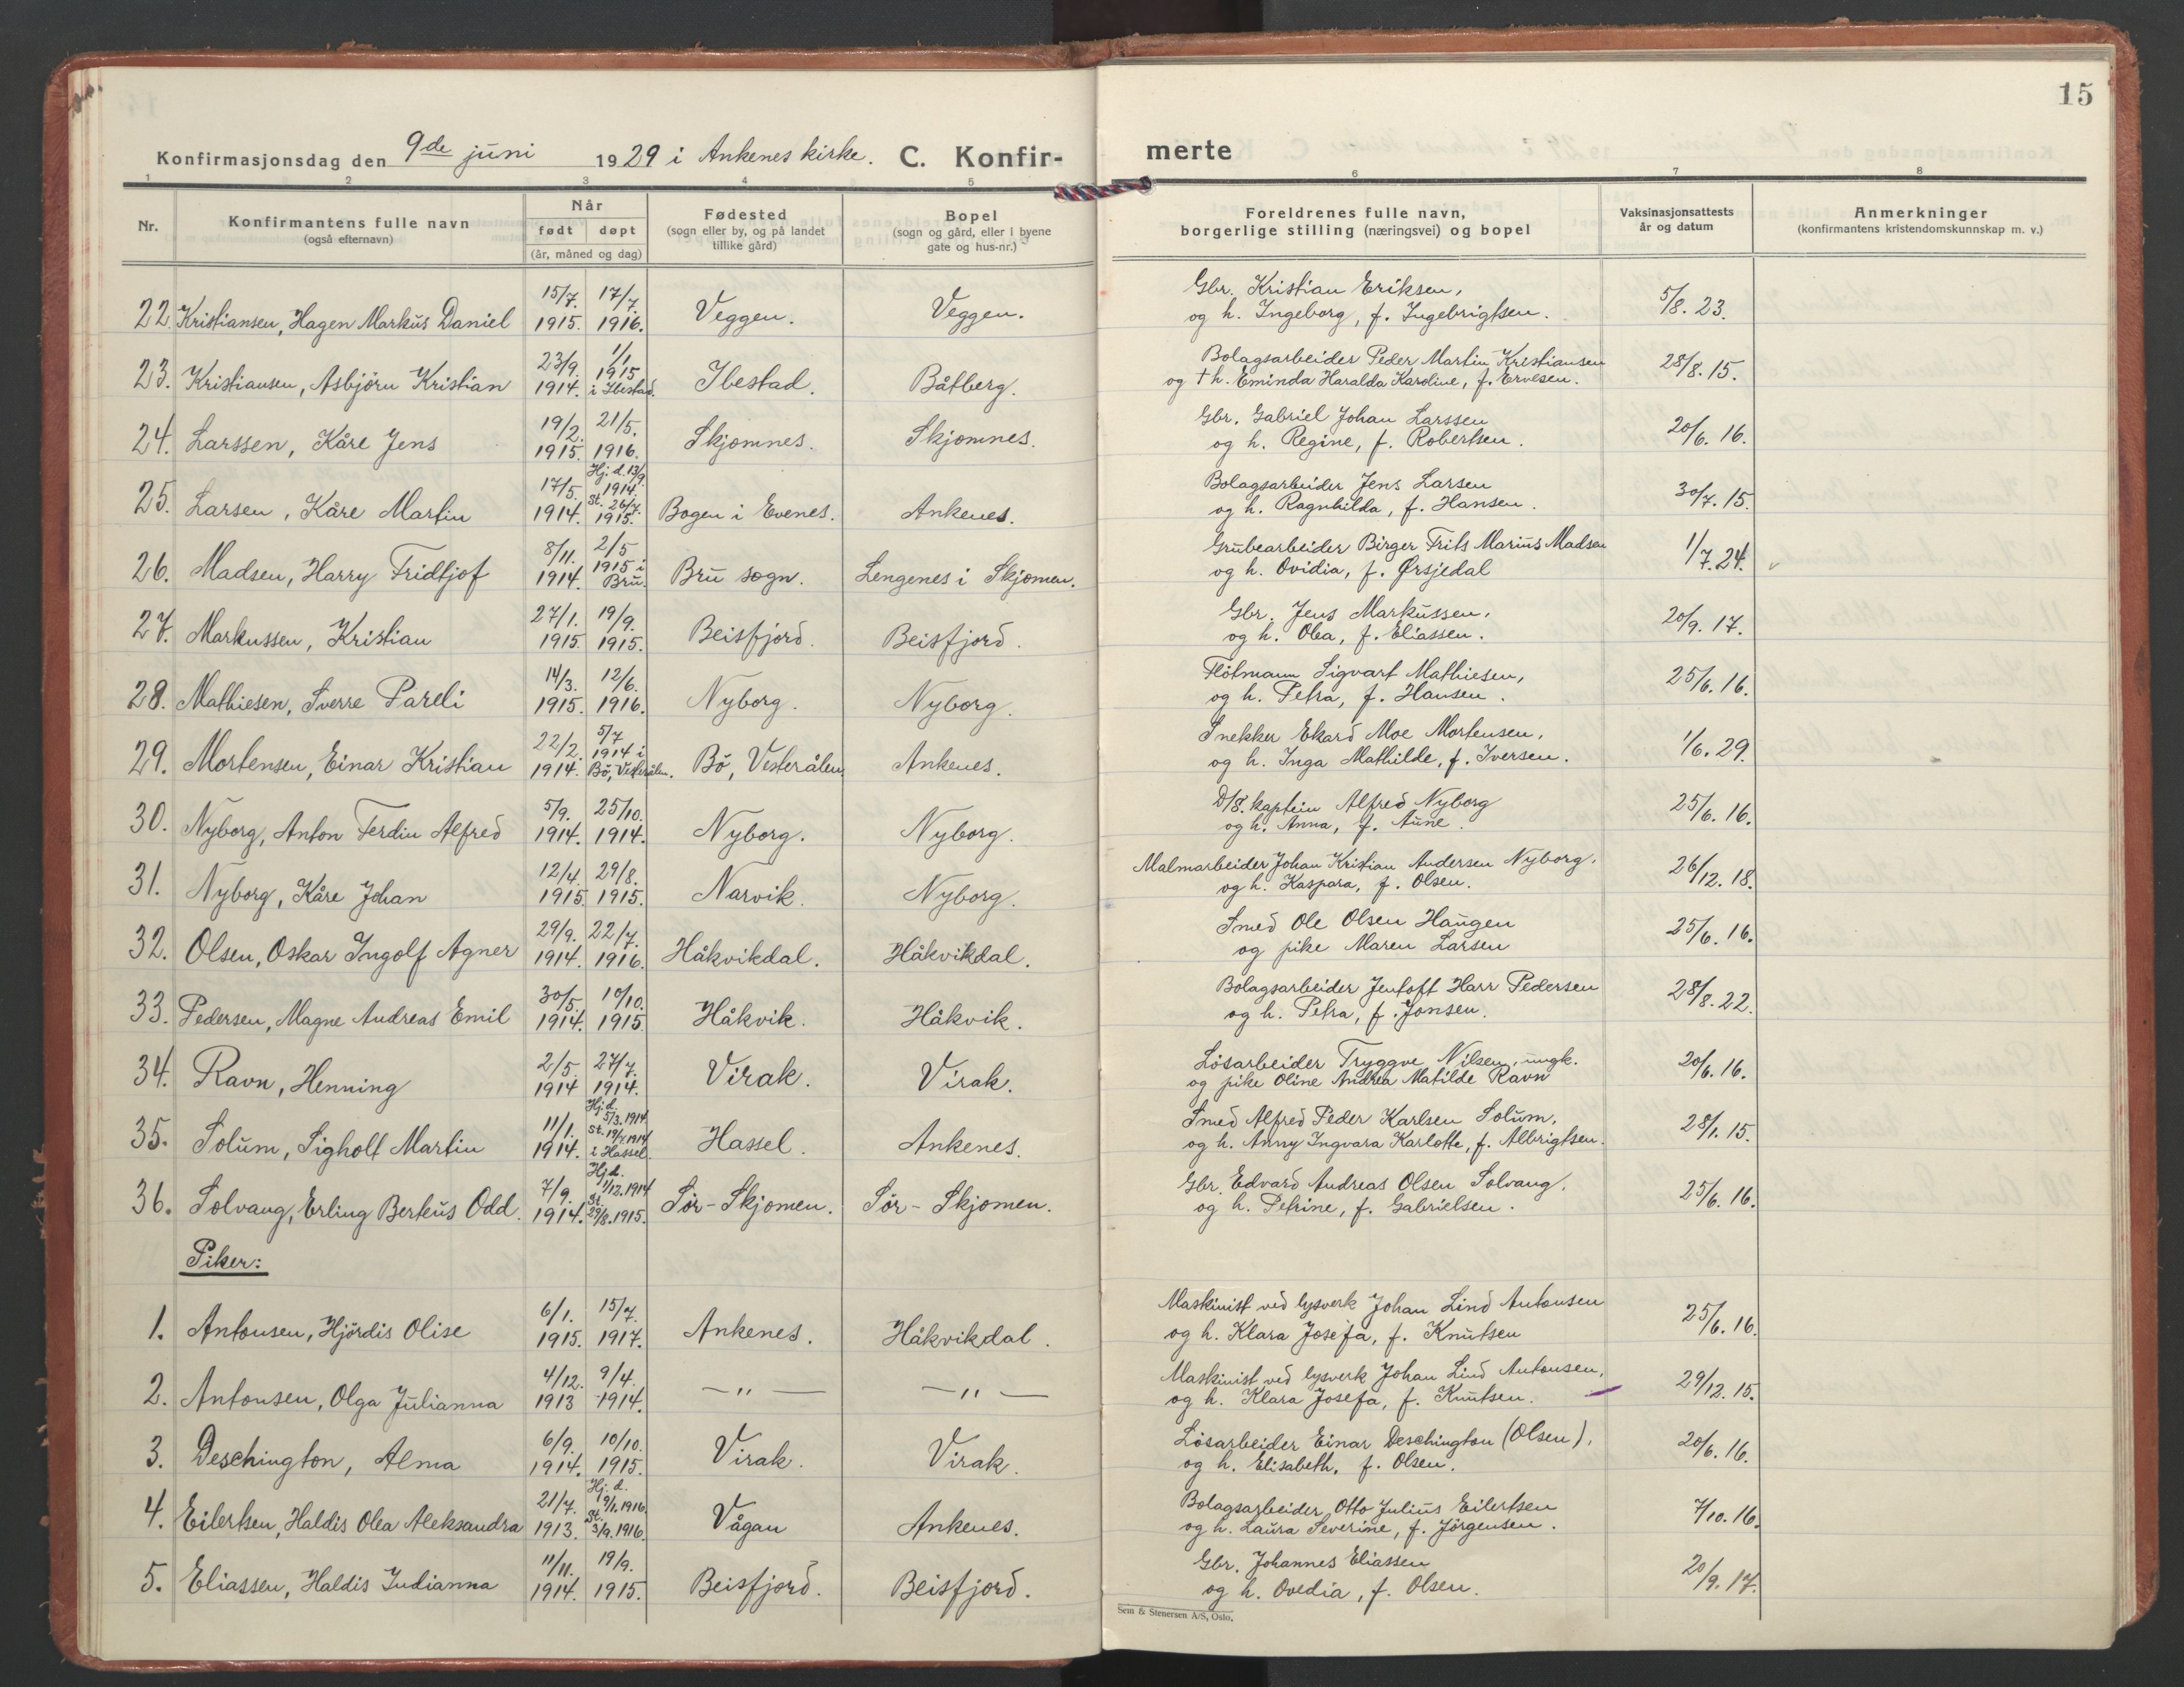 15
Konfirmasjonsdag den 9de juni 1929 i Ankenes kirke. C. Konfir-
merte
1 2 3 4 5 6 7 8
Nr.
Konfirmantens fulle navn
(også efternavn)
Når
født døpt
(år, måned og dag)
Fødested
(sogn eller by, og på landet
tillike gård)
Bopel
(sogn og gård, eller i byene
gate og hus-nr.)
Foreldrenes fulle navn,
borgerlige stilling (næringsvei) og bopel
Vaksinasjonsattests
år og datum
Anmerkninger
(konfirmantens kristendomskunnskap m. v.)
22. Kristiansen, Hagen Markus Daniel
15/7. 1915.
17/7. 1916.
Veggen.
Veggen.
Gbr. Kristian Eriksen,
og h. Ingeborg, f. Ingebrigtsen.
5/8. 23.
23. Kristiansen, Asbjörn Kristian
23/9. 1914.
1/1 1915 i Ibestad.
Ibestad.
Båtberg.
Bolagsarbeider Peder Martin Kristiansen
og † h. Eminda Haralda Karoline, f. Ervesen.
28/8. 15.
24. Larssen, Kåre Jens
19/2. 1915.
21/5. 1916.
Skjomnes.
Skjomnes.
Gbr. Gabriel Johan Larssen
og h. Regine, f. Robertsen.
20/6. 16.
25. Larsen, Kåre Martin
17/5. 1914.
Hj. d. 13/9. 1914. St. 26/7. 1915.
Bogen i Evenes.
Ankenes.
Bolagsarbeider Jens Larsen
og h. Ragnhilda, f. Hansen.
30/7. 15.
26. Madsen, Harry Fridtjof
8/11. 1914.
2/5 1915 i Bru.
Bru sogn.
Lengenes i Skjomen.
Grubearbeider Birger Frits Marius Madsen
og h. Ovidia, f. Ørsjedal
1/7. 24.
27. Markussen, Kristian
27/1. 1915.
19/9. 1915.
Beisfjord.
Beisfjord.
Gbr. Jens Markussen,
og h. Olea, f. Eliassen.
20/9. 17.
28. Mathiesen, Sverre Pareli
14/3. 1915.
12/6. 1916.
Nyborg.
Nyborg.
Flötmann Sigvart Mathiesen,
og h. Petra, f. Hansen.
25/6. 16.
29. Mortensen, Einar Kristian
22/2. 1914.
5/7 1914 i Bö, Vesterålen.
Bö, Vesterålen
Ankenes.
Snekker Ekard Moe Mortensen,
og h. Inga Mathilde, f. Iversen.
1/6. 29.
30. Nyborg, Anton Ferdin Alfred
5/9. 1914.
25/10. 1914.
Nyborg.
Nyborg.
D/S. kaptein Alfred Nyborg
og h. Anna, f. Aune.
25/6. 16.
31. Nyborg, Kåre Johan
12/4. 1915.
29/8. 1915.
Narvik.
Nyborg.
Malmarbeider Johan Kristian Andersen Nyborg.
og h. Kaspara, f. Olsen.
26/12. 18.
32. Olsen, Oskar Ingolf Agner
29/9. 1914.
22/7. 1916.
Håkvikdal.
Håkvikdal.
Smed Ole Olsen Haugen
og pike Maren Larsen
25/6. 16.
33. Pedersen, Magne Andreas Emil
30/5. 1914.
10/10. 1915.
Håkvik.
Håkvik.
Bolagsarbeider Jentoft Harr Pedersen
og h. Petra, f. Jonsen.
28/8. 22.
34. Ravn, Henning
2/5. 1914
27/7. 1914.
Virak.
Virak.
Lösarbeider Tryggve Nilsen, ungk.
og pike Oline Andrea Matilde Ravn
20/6. 16.
35. Solum, Sigholt Martin
11/1. 1914.
Hj. d. 5/3. 1914 St. 19/7. 1914 i Hassel.
Hassel.
Ankenes.
Smed Alfred Peder Karlsen Solum,
og h. Anny Ingvara Karlotte, f. Albrigtsen.
28/1. 15.
36. Solvang, Erling Berteus Odd.
7/9. 1914.
Hj. d. 1/12. 1914 St. 29/8. 1915.
Sør-Skjomen.
Sør-Skjomen.
Gbr. Edvard Andreas Olsen Solvang.
og h. Petrine, f. Gabrielsen.
25/6. 16.
Piker:
1. Antonsen, Hjördis Olise
6/1. 1915.
15/7. 1917.
Ankenes.
Håkvikdal.
Maskinist ved lysverk Johan Lind Antonsen
og h. Klara Josefa, f. Knutsen
25/6. 16.
2. Antonsen, Olga Julianna
4/12. 1913
9/4. 1914.
— " —
— " —
Maskinist ved lysverk Johan Lind Antonsen,
og h. Klara Josefa, f. Knutsen.
29/12. 15.
3. Deschington, Alma
6/9. 1914.
10/10. 1915.
Virak.
Virak.
Lösarbeider Einar Deschington (Olsen),
og h. Elisabeth, f. Olsen.
20/6. 16.
4. Eilertsen, Haldis Olea Aleksandra
21/7. 1913.
Hj. d. 19/1. 1916. St. 3/9. 1916.
Vågan
Ankenes.
Bolagsarbeider Otto Julius Eilertsen
og h. Laura Severine, f. Jörgensen.
7/10. 16.
5. Eliassen, Haldis Indianna
11/11. 1914.
19/9. 1915.
Beisfjord.
Beisfjord.
Gbr. Johannes Eliassen
og h. Ovedia, f. Olsen.
20/9. 17.
Sem & Stenersen A/S, Oslo.